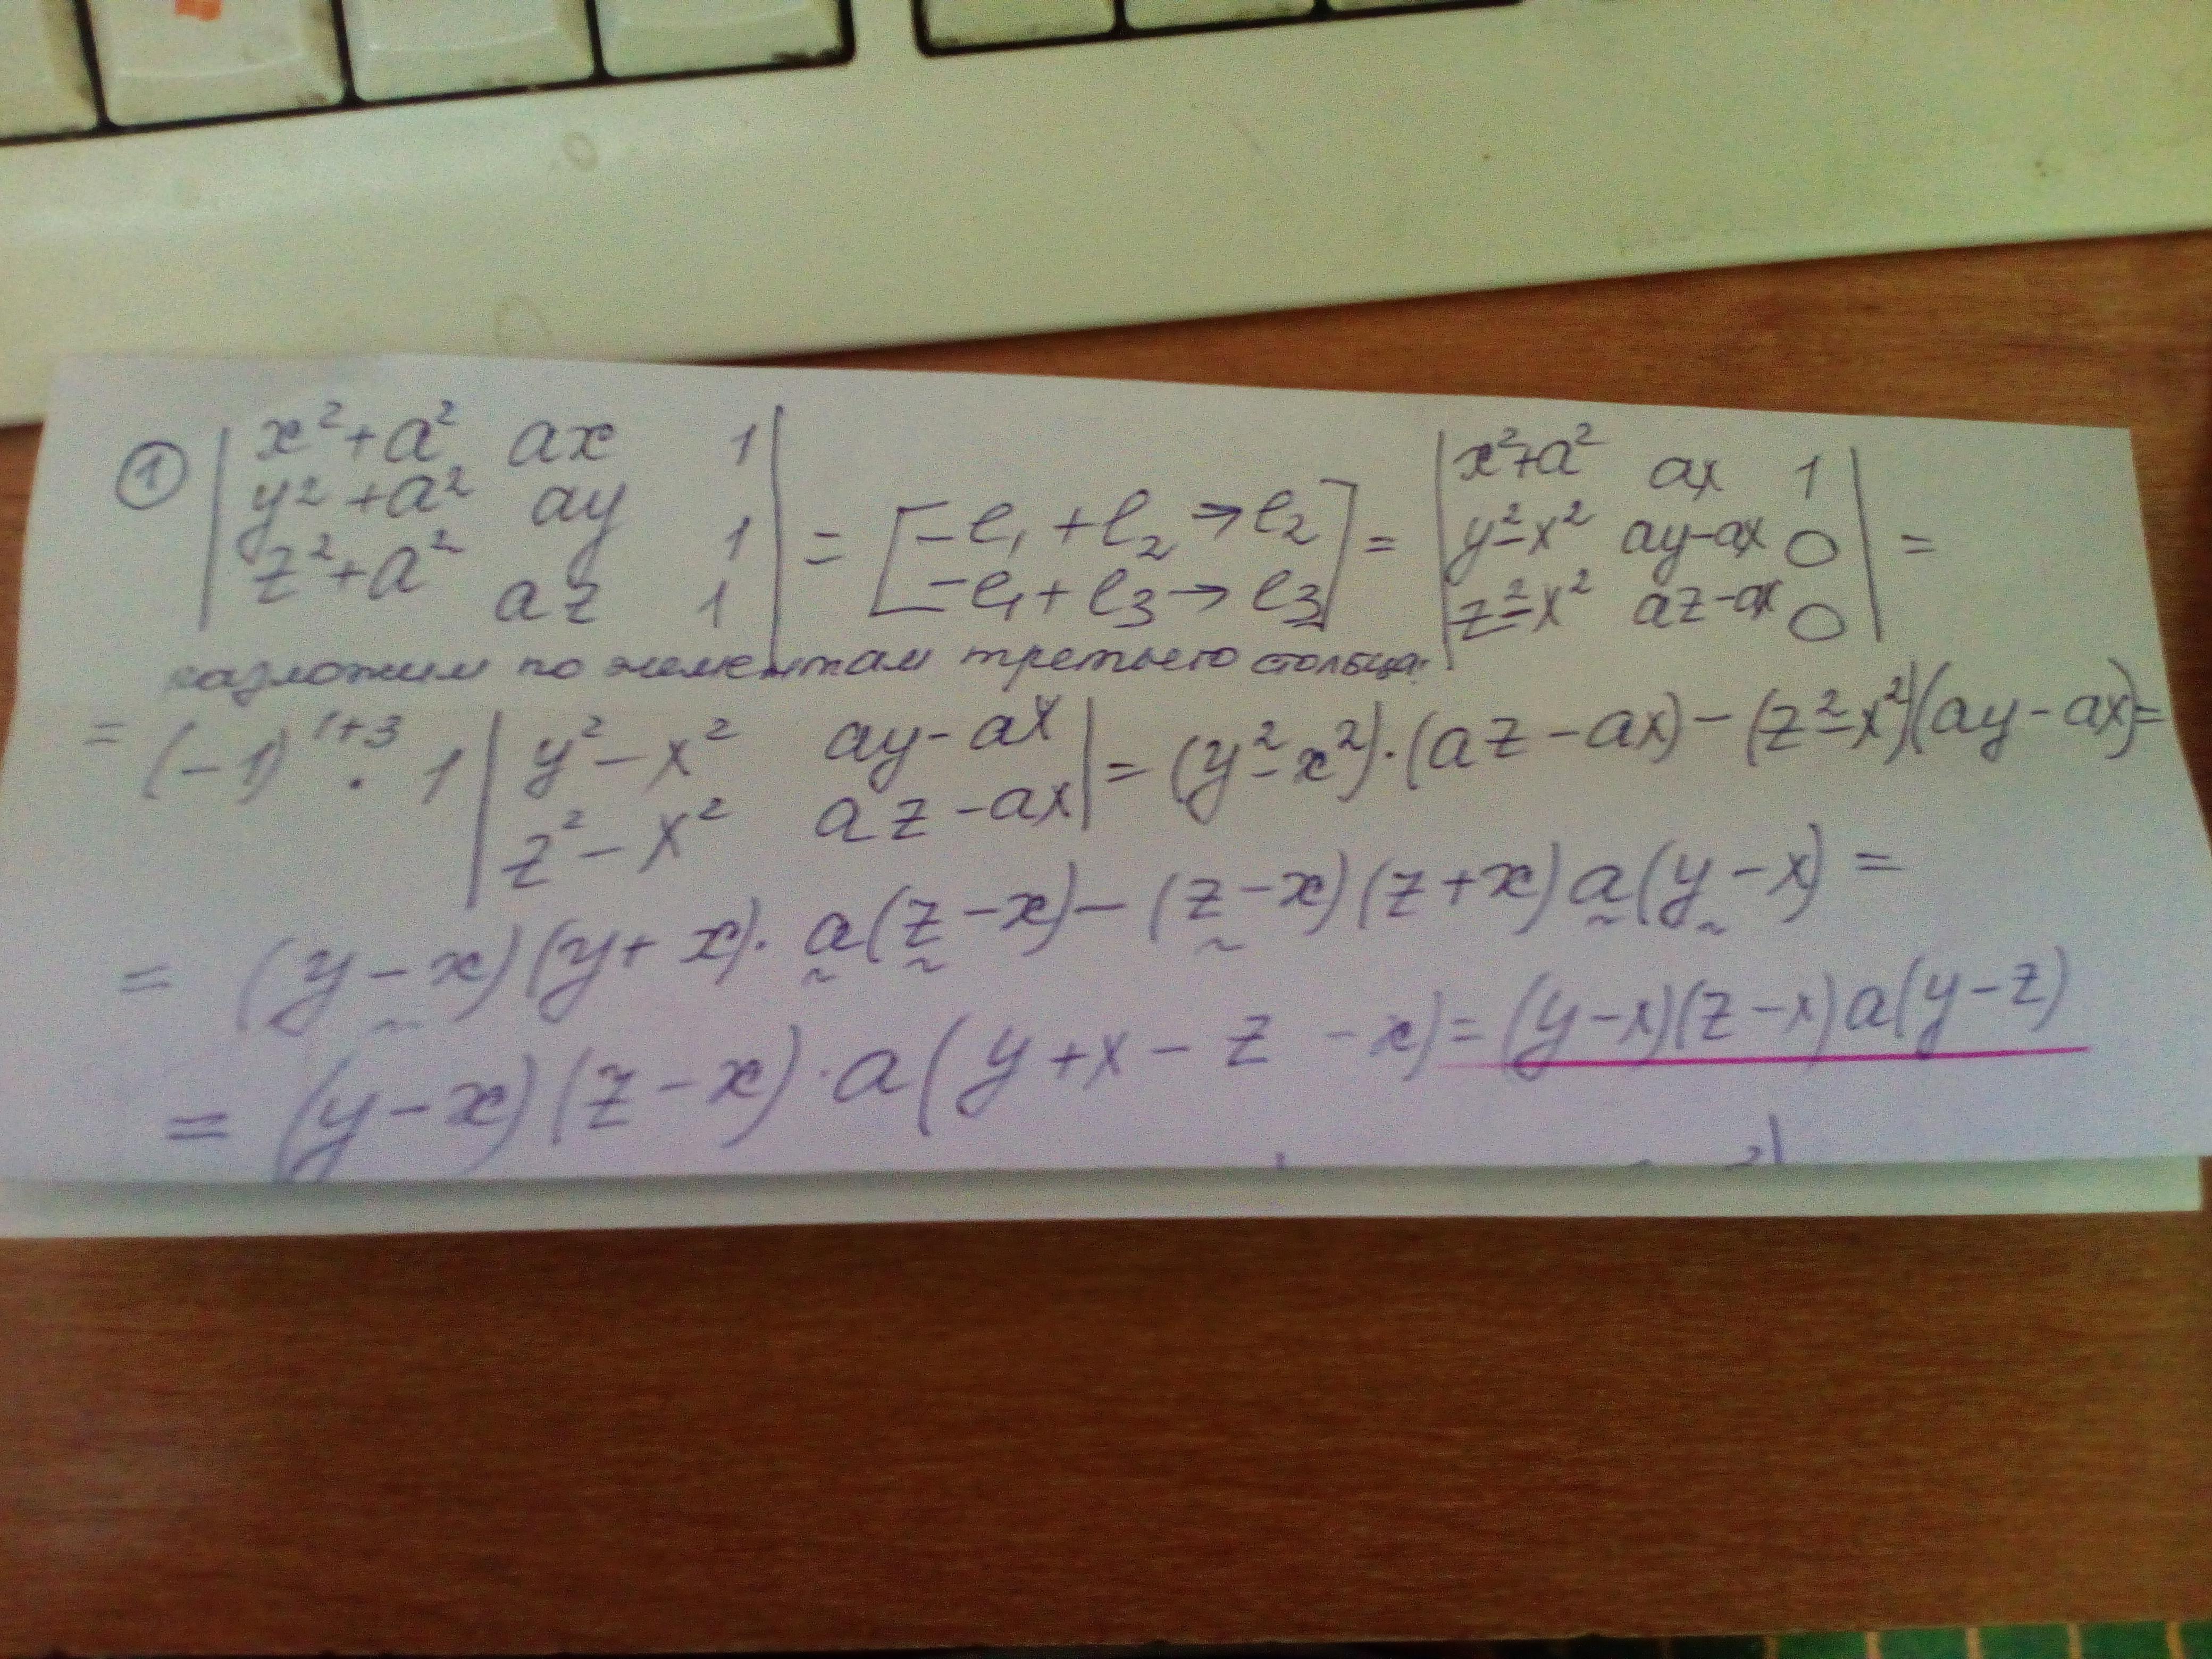 ① | x²+a² ax 1 | = [ -l₁+l₂→l₂ ] = | x²+a² ax 1 | =
| y²+a² ay 1 | [ -l₁+l₃→l₃ ] | y²-x² ay-ax 0 |
| z²+a² az 1 | | z²-x² az-ax 0 |
разложим по элементам третьего столбца:
= (-1)¹⁺³ · 1 | y²-x² ay-ax | = (y²-x²)·(az-ax)-(z²-x²)(ay-ax)=
| z²-x² az-ax |
= (y-x)(y+x)·a(z-x)-(z-x)(z+x)a(y-x)=
= (y-x)(z-x)·a(y+x-z-x)=(y-x)(z-x)a(y-z)